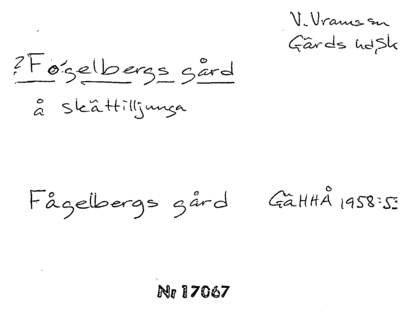 V. Vrams sn
Gärds hd, Sk
?Fogelbergs gård
å skättilljunga
Fågelbergs gård GäHHÅ 1958:5:
Nr 17067